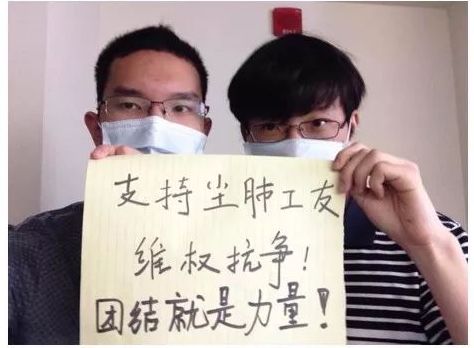 支持尘肺工友
维权抗争!
团结就是力量!